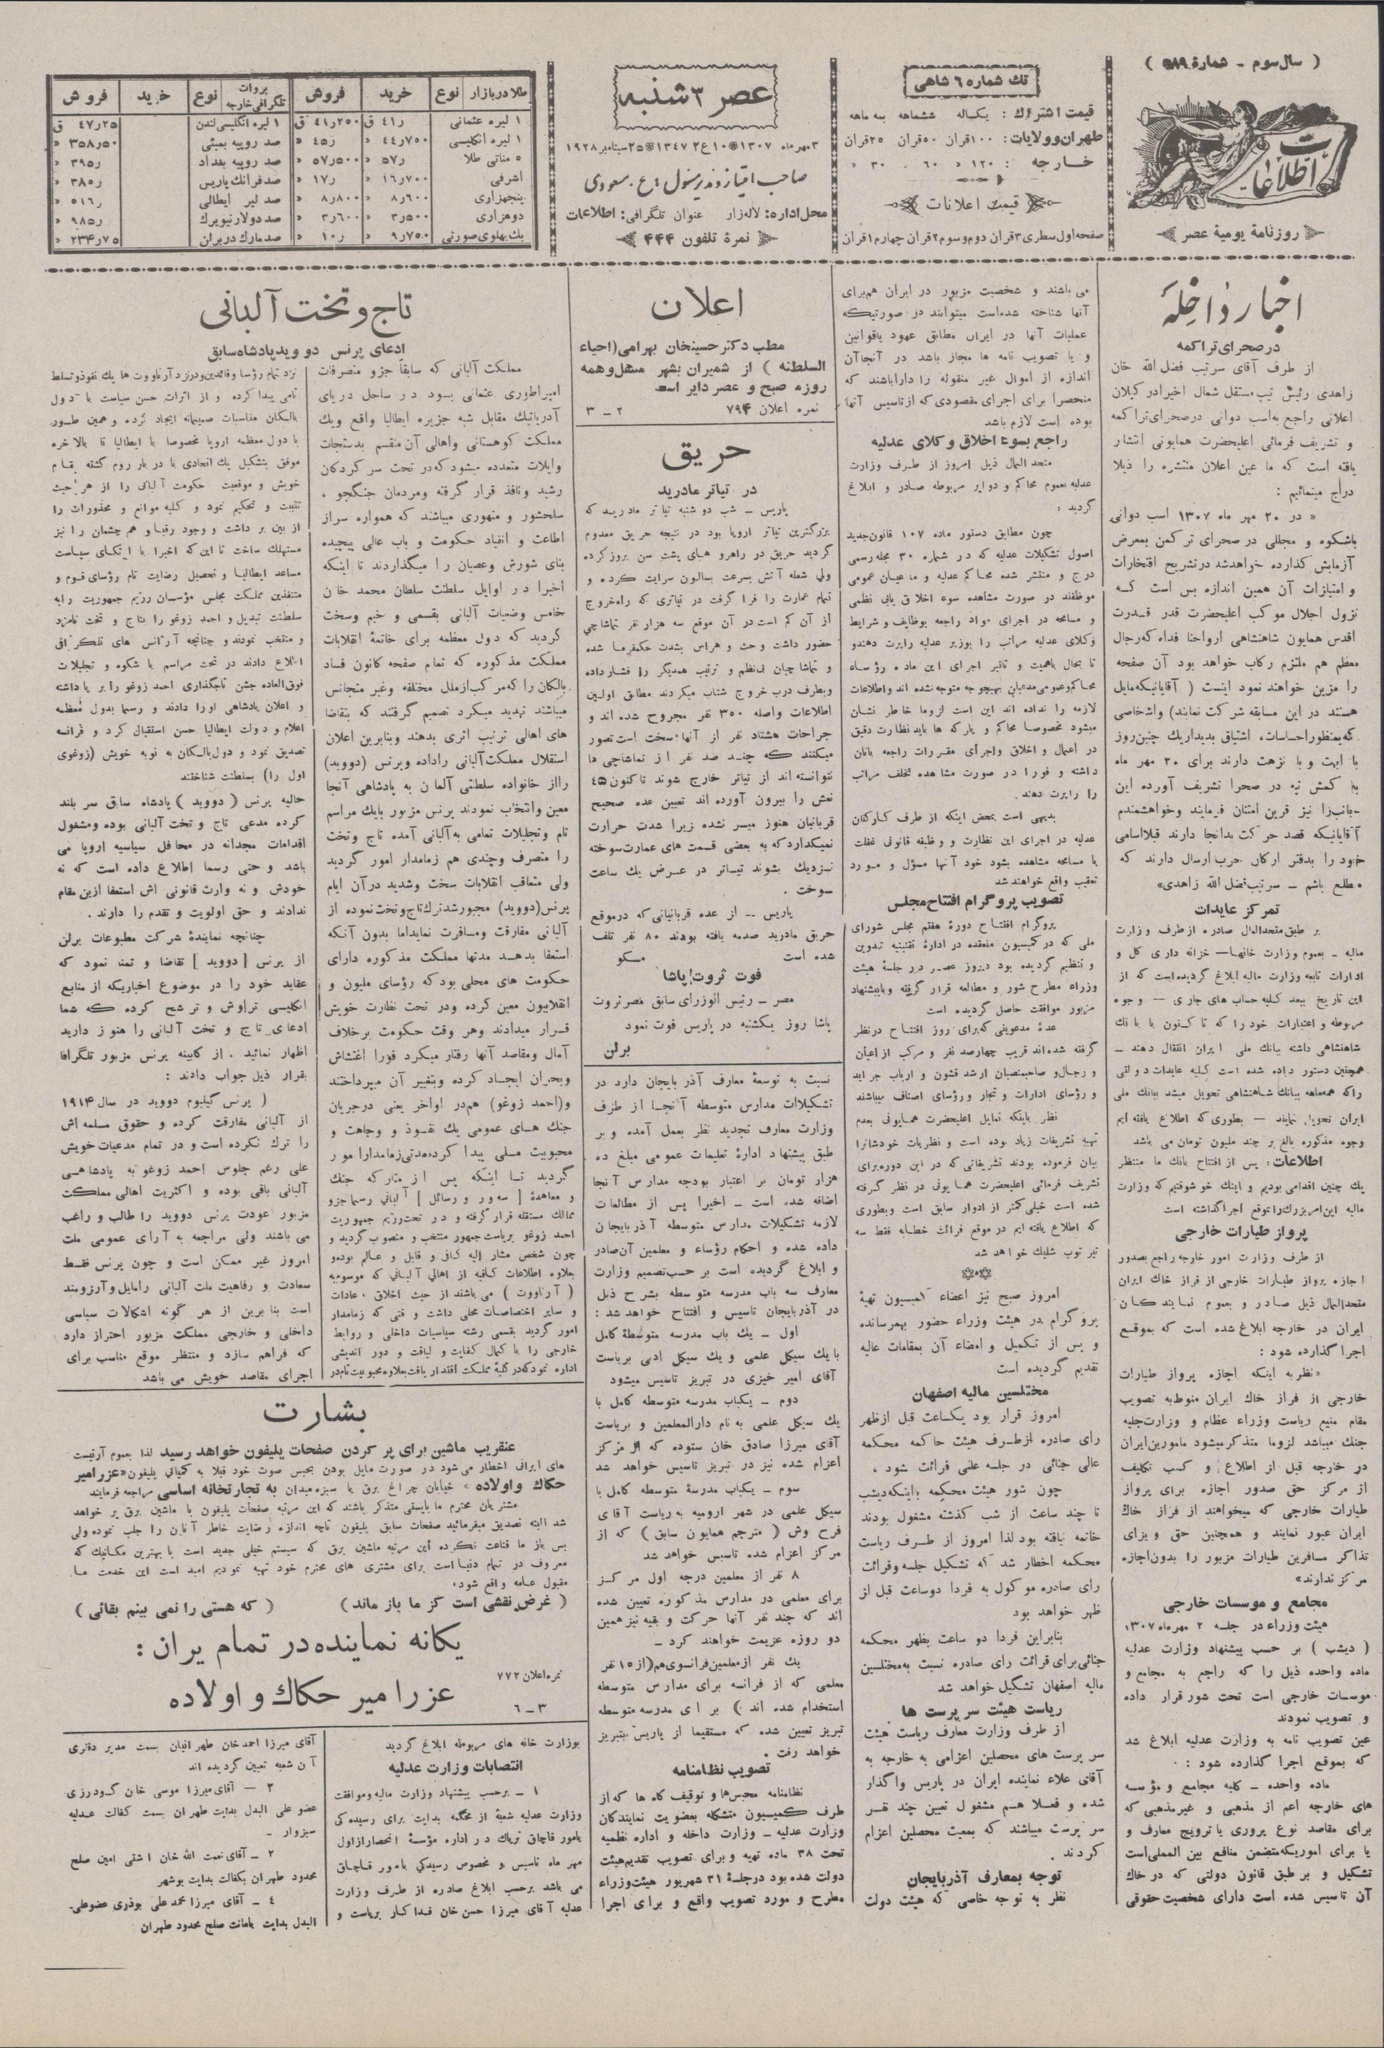 ( سال سوم - شمارهٔ ۵۸۹ )
اطلاعات
روزنامهٔ یومیهٔ عصر
تك شماره ۶ شاهی
قیمت اشتراك : یكساله ششماهه سه ماهه
طهران وولایات : ۱۰۰ قران ۵۰ قران ۲۵ قران
خارجه : ۱۲۰ « ۶۰ . ۳۰ «
قیمت اعلانات
صفحه اول سطری ۳ قران دوم وسوم ۲ قران چهارم ۱ قران
عصر ۳ شنبه
۳ مهر ماه ۱۳۰۷ ۱۰ ع۲ ۱۳۴۷ ۲۵ سپتامبر ۱۹۲۸
صاحب امتیاز و مدیر مسئول : ع . مسعودی
محل اداره: لاله زار عنوان تلگرافی: اطلاعات
نمرهٔ تلفون ۴۴۴
طلا در بازار نوع خرید فروش
۱ لیره عثمانی ۴۱ر ق ۴۱ر۲۵۰ ق
۱ لیره انگلیسی ۴۴ر۷۵۰ ۴۵ر «
۵ مناتی طلا ۵۷ر « ۵۷ر۵۰۰ «
اشرفی ۱۶ر۷۰۰ « ۱۷ر «
پنجهزاری ۸ر۶۰۰ « ۸ر۸۰۰ «
دوهزاری ۳ر۵۰۰ « ۳ر۶۰۰ «
یك پهلوی صورتی ۹ر۷۵۰ « ۱۰ر «
بروات تلگرافی خارجه نوع خرید فروش
۱ لیره انگلیسی لندن ۴۷ر۲۵ ق
صد روپیه بمبئی ۳۵۸ر۵۰ «
صد روپیه بغداد ۳۹۵ر «
صد فرانك پاریس ۳۸۰ر «
صد لیر ایطالی ۵۱۶ر «
صد دولار نیویرك ۹۸۵ر «
صد مارك در برلن ۲۳۴ر۷۵ «
اخبار داخله
در صحرای تراکمه
از طرف آقای سرتیپ فضل الله خان
زاهدی رئیس تیپ مستقل شمال اخیرا در گیلان
اعلانی راجع به اسب دوانی در صحرای تراکمه
و تشریف فرمائی اعلیحضرت همایونی انتشار
یافته است که ما عین اعلان منتشره را ذیلا
درج مینمائیم :
« در ۲۰ مهر ماه ۱۳۰۷ اسب دوانی
باشکوه و مجللی در صحرای ترکمن بمعرض
آزمایش گذارده خواهد شد در تشریح افتخارات
و امتیازات آن همین اندازه بس است که
نزول اجلال موکب اعلیحضرت قدر قدرت
اقدس همایون شاهنشاهی ارواحنا فداه که رجال
معظم هم ملتزم رکاب خواهد بود آن صفحه
را مزین خواهند نمود اینست ( آقایانیکه مایل
هستند در این مسابقه شرکت نمایند) واشخاصی
که بمنظور احساسات، اشتیاق بدیدار یك چنین روز
با ابهت و با نزهت دارند برای ۲۰ مهر ماه
به کمش تپه در صحرا تشریف آورده این
جانب را نیز قرین امتنان فرمایند وخواهشمندم
آقایانیکه قصد حرکت بدانجا دارند قبلا اسامی
خود را بدفتر ارکان حرب ارسال دارند که
مطلع باشم – سرتیپ فضل الله زاهدی»
تمرکز عایدات
بر طبق متحدالمال صادره از طرف وزارت
مالیه - بعموم وزارت خانها– خزانه داری کل و
ادارات تابعه وزارت مالیه ابلاغ گردیده است که از
این تاریخ ببعد کلیه حساب های جاری – وجوه
مربوطه و اعتبارات خود را که تا کنون با بانك
شاهنشاهی داشته ببانك ملی ایران انتقال دهند –
همچنین دستور داده شده است کلیه عایدات دولتی
را که همه ماهه ببانك شاهنشاهی تحویل میشد ببانك ملی
ایران تحویل نمایند – بطوری که اطلاع یافته ایم
وجوه مذکوره بالغ بر چند ملیون تومان می باشد
اطلاعات : پس از افتتاح بانك ما منتظر
یك چنین اقدامی بودیم و اینك خوشوقتیم که وزارت
مالیه این امر بزرك را موقع اجرا گذاشته است
پرواز طیارات خارجی
از طرف وزارت امور خارجه راجع بصدور
اجازه پرواز طیارات خارجی از فراز خاك ایران
متحدالمال ذیل صادر و بعموم نمایندگان
ایران در خارجه ابلاغ شده است که بموقع
اجرا گذارده شود :
«نظر به اینکه اجازه پرواز طیارات
خارجی از فراز خاك ایران منوط به تصویب
مقام منیع ریاست وزراء عظام و وزارت جلیله
جنك میباشد لزوما متذکر میشود مامورین ایران
در خارجه قبل از اطلاع و کسب تکلیف
از مرکز حق صدور اجازه برای پرواز
طیارات خارجی که میخواهند از فراز خاك
ایران عبور نمایند و همچنین حق ویزای
تذاکر مسافرین طیارات مزبور را بدون اجازه
مرکز ندارند»
مجامع و موسسات خارجی
هیئت وزراء در جلسه ۲ مهر ماه ۱۳۰۷
( دیشب ) بر حسب پیشنهاد وزارت عدلیه
ماده واحده ذیل را که راجع به مجامع و
موسسات خارجی است تحت شور قرار داده
و تصویب نمودند
عین تصویب نامه به وزارت عدلیه ابلاغ شد
که بموقع اجرا گذارده شود :
ماده واحده – کلیه مجامع و مؤسسه
های خارجه اعم از مذهبی و غیر مذهبی که
برای مقاصد نوع پروری یا ترویج معارف و
یا برای اموریکه متضمن منافع بین المللی است
تشکیل و بر طبق قانون دولتی که در خاك
آن تاسیس شده است دارای شخصیت حقوقی
می باشند و شخصیت مزبور در ایران هم برای
آنها شناخته شده است میتوانند در صورتیکه
عملیات آنها در ایران مطابق عهود یا قوانین
و یا تصویب نامه ها مجاز باشد در آنجا آن
اندازه از اموال غیر منقوله را دارا باشند که
منحصرا برای اجرای مقصودی که از تاسیس آنها
بوده است لازم باشد
راجع بسوء اخلاق وکلای عدلیه
متحدالمال ذیل امروز از طرف وزارت
عدلیه بعموم محاکم و دوایر مربوطه صادر و ابلاغ
گردید :
چون مطابق دستور ماده ۱۰۷ قانون جدید
اصول تشکیلات عدلیه که در شماره ۳۰ مجله رسمی
درج و منتشر شده محاکم عدلیه و مدعیان عمومی
موظفند در صورت مشاهده سوء اخلاق یا بی نظمی
و مسامحه در اجرای مواد راجعه بوظایف و شرایط
وکلای عدلیه مراتب را بوزیر عدلیه راپرت دهند و
تا بحال باهمیت و تاثیر اجرای این ماده رؤساء
محاکم و عمومی مدعیان بهیچوجه متوجه نشده اند و اطلاعات
لازمه را نداده اند این است لزوما خاطر نشان
میشود مخصوصا محاکم و پارکه ها باید نظارت دقیق
در اعمال و اخلاق واجرای مقررات راجعه بآنان
داشته و فورا در صورت مشاهده تخلف مراتب
را راپرت دهند .
بدیهی است بمحض اینکه از طرف کارکنان
عدلیه در اجرای این نظارت و وظیفه قانونی غفلت
یا مسامحه مشاهده بشود خود آنها مسؤل و مورد
تعقیب واقع خواهند شد
تصویب پروگرام افتتاح مجلس
پروگرام افتتاح دورهٔ هفتم مجلس شورای
ملی که در کمیسیون منعقده در ادارهٔ تقنینیه تدوین
و تنظیم گردیده بود دیروز عصر در جلسهٔ هیئت
وزراء مطرح شور و مطالعه قرار گرفته و با پیشنهاد
مزبور موافقت حاصل گردیده است
عدهٔ مدعوینی که برای روز افتتاح در نظر
گرفته شده اند قریب چهارصد نفر و مرکب از اعیان
و رجال و صاحبمنصبان ارشد قشون و ارباب جراید
و رؤسای ادارات و تجار ورؤسای اصناف میباشند
نظر باینکه تمایل اعلیحضرت همایونی بعدم
تهیه تشریفات زیاد بوده است و نظریات خودشانرا
بیان فرموده بودند تشریفاتی که در این دوره برای
تشریف فرمائی اعلیحضرت همایونی در نظر گرفته
شده است خیلی کمتر از ادوار سابق است وبطوری
که اطلاع یافته ایم در موقع قرائت خطابه فقط سه
تیر توپ شلیك خواهد شد
امروز صبح نیز اعضاء کمیسیون تهیهٔ
پروگرام در هیئت وزراء حضور بهمرسانده
و پس از تکمیل و امضاء آن بمقامات عالیه
تقدیم گردیده است
مختلسین مالیه اصفهان
امروز قرار بود یکساعت قبل از ظهر
رای صادره از طرف هیئت حاکمه محکمه
عالی جنائی در جلسه علنی قرائت شود ،
چون شور هیئت محکمه با اینکه دیشب
تا چند ساعت از شب گذشته مشغول بودند
خاتمه نیافته بود لذا امروز از طرف ریاست
محکمه اخطار شد که تشکیل جلسه و قرائت
رای صادره موکول به فردا دوساعت قبل از
ظهر خواهد بود
بنابراین فردا دو ساعت بظهر محکمه
جنائی برای قرائت رای صادره نسبت به مختلسین
مالیه اصفهان تشکیل خواهد شد
ریاست هیئت سرپرست ها
از طرف وزارت معارف ریاست هیئت
سرپرست های محصلین اعزامی به خارجه به
آقای علاء نماینده ایران در پاریس واگذار
شده و فعلا هم مشغول تعیین چند نفر
سرپرست میباشند که بمعیت محصلین اعزام
گردند .
توجه بمعارف آذربایجان
نظر به توجه خاصی که هیئت دولت
اعلان
مطب دکتر حسینخان بهرامی (احیاء
السلطنه ) از شمیران بشهر منتقل و همه
روزه صبح و عصر دایر است
نمره اعلان ۷۹۴ ۲ – ۳
حریق
در تیاتر مادرید
پاریس – شب دوشنبه تیاتر مادرید که
بزرگترین تیاتر اروپا بود در نتیجه حریق معدوم
گردید حریق در راهرو های پشت سن بروز کرده
ولی شعله آتش بسرعت بسالون سرایت کرده و
تمام عمارت را فرا گرفت در تیاتری که راه خروج
از آن کم است در آن موقع سه هزار نفر تماشاچی
حضور داشت وحشت و هراس بشدت حکمفرما شده
و تماشاچیان بی نظم و ترتیب همدیگر را فشار داده
و بطرف درب خروج شتاب میکردند مطابق اولین
اطلاعات واصله ۳۵۰ نفر مجروح شده اند و
جراحات هشتاد نفر از آنها سخت است تصور
میکنند که چند صد نفر از تماشاچی ها
نتوانسته اند از تیاتر خارج شوند تا کنون ۴۵
نعش را بیرون آورده اند تعیین عده صحیح
قربانیان هنوز میسر نشده زیرا شدت حرارت
نمیگذارد که به بعضی قسمت های عمارت سوخته
نزدیك بشوند تیاتر در عرض یك ساعت
سوخت .
پاریس -- از عده قربانیانی که در موقع
حریق مادرید صدمه یافته بودند ۸۰ نفر تلف
شده است مسکو
فوت ثروت پاشا
مصر – رئیس الوزرای سابق مصر ثروت
پاشا روز یکشنبه در پاریس فوت نمود
برلن
نسبت به توسعهٔ معارف آذربایجان دارد در
تشکیلات مدارس متوسطه آنجا از طرف
وزارت معارف تجدید نظر بعمل آمده و بر
طبق پیشنهاد ادارهٔ تعلیمات عمومی مبلغ ده
هزار تومان بر اعتبار بودجه مدارس آنجا
اضافه شده است – اخیرا پس از مطالعات
لازمه تشکیلات مدارس متوسطه آذربایجان
داده شده و احکام رؤساء و معلمین آن صادر
و ابلاغ گردیده است بر حسب تصمیم وزارت
معارف سه باب مدرسه متوسطه بشرح ذیل
در آذربایجان تاسیس و افتتاح خواهد شد :
اول – یك باب مدرسه متوسطهٔ کامل
با یك سیکل علمی و یك سیکل ادبی بریاست
آقای امیر خیزی در تبریز تاسیس میشود
دوم – یکباب مدرسه متوسطه کامل با
یك سیکل علمی به نام دارالمعلمین و بریاست
آقای میرزا صادق خان ستوده که از مرکز
اعزام شده نیز در تبریز تاسیس خواهد شد
سوم – یکباب مدرسهٔ متوسطه کامل با
سیکل علمی در شهر ارومیه به ریاست آقای
فرح وش ( مترجم همایون سابق ) که از
مرکز اعزام شده تاسیس خواهد شد
۸ نفر از معلمین درجه اول مرکز
برای معلمی در مدارس مذکوره تعیین شده
اند که چند نفر آنها حرکت و بقیه نیز همین
دو روزه عزیمت خواهند کرد –
یك نفر از معلمین فرانسوی هم (از ۱۵ نفر
معلمی که از فرانسه برای مدارس متوسطه
استخدام شده اند ) برای مدرسه متوسطه
تبریز تعیین شده که مستقیما از پاریس بتبریز
خواهد رفت .
تصویب نظامنامه
نظامنامه محبس‌ها و توقیف گاه ها که از
طرف کمیسیون متشکله بعضویت نمایندگان
وزارت عدلیه – وزارت داخله و اداره نظمیه
تحت ۳۸ ماده تهیه و برای تصویب تقدیم هیئت
دولت شده بود در جلسهٔ ۳۱ شهریور هیئت وزراء
مطرح و مورد تصویب واقع و برای اجرا
تاج و تخت آلبانی
ادعای پرنس دووید پادشاه سابق
مملکت آلبانی که سابقا جزو متصرفات
امپراطوری عثمانی بود در ساحل دریای
آدریاتیك مقابل شبه جزیره ایطالیا واقع و یك
مملکت کوهستانی و اهالی آن منقسم بدستجات
و ایلات متعدده میشود که در تحت سرکردگان
رشید و نافذ قرار گرفته و مردمان جنگجو ،
سلحشور و متهوری میباشند که همواره سر از
اطاعت و انقیاد حکومت و باب عالی پیچیده
بنای شورش و عصیان را میگذاردند تا اینکه
اخیرا در اوایل سلطنت سلطان محمد خان
خامس وضعیات آلبانی بقسمی وخیم و سخت
گردید که دول معظمه برای خاتمهٔ انقلابات
مملکت مذکوره که تمام صفحه کانون فساد
بالکان را که مرکب از ملل مختلفه و غیر متجانس
میباشند تهدید میکرد تصمیم گرفتند که بتقاضا
های اهالی ترتیب اثری بدهند و بنابرین اعلان
استقلال مملکت آلبانی را داده و پرنس (دووید)
را از خانواده سلطنتی آلمان به پادشاهی آنجا
معین و انتخاب نمودند پرنس مزبور با یك مراسم
تام و تجلیلات تمامی به آلبانی آمده تاج و تخت
را متصرف و چندی هم زمامدار امور گردید
ولی متعاقب انقلابات سخت و شدید در آن ایام
پرنس (دووید) مجبور شد ترك تاج و تخت نموده از
آلبانی مفارقت و مسافرت نماید اما بدون آنکه
استعفا بدهد مدتها مملکت مذکوره دارای
حکومت های محلی بود که رؤسای ملیون و
انقلابیون معین کرده و در تحت نظارت خویش
قرار میدادند و هر وقت حکومت برخلاف
آمال و مقاصد آنها رفتار میکرد فورا اغتشاش
و بحران ایجاد کرده و بتغییر آن میپرداختند
و (احمد زوغو) هم در اواخر یعنی در جریان
جنك های عمومی یك نفوذ و وجاهت و
محبوبیت ملی پیدا کرده مدتی زمامدار امور
گردید تا اینکه پس از متارکه جنك
و معاهدهٔ [ سه ور و رسائل ] آلبانی رسما جزو
ممالك مستقله قرار گرفته و در تحت رژیم جمهوریت
احمد زوغو بریاست جمهور منتخب و منصوب گردید و
چون شخص مشار الیه کافی و قابل و عالم بوده و
بعلاوه اطلاعات کافیه از اهالی آلبانی که موسوم به
( آرناووت ) می باشند از حیث اخلاق ، عادات
و سایر اختصاصات محلی داشت و فتی که زمامدار
امور گردید بقسمی رشته سیاسیات داخلی و روابط
خارجی را با کمال کفایت و لیاقت و دور اندیشی
اداره نمود که در کلیهٔ مملکت اقتدار یافت بعلاوه محبوبیت تام در
نزد تمام رؤسا و قائدین و در نزد آرناووت ها یك نفوذ و تسلط
تامی پیدا کرده و از اثرات حسن سیاست با دول
بالکان مناسبات صمیمانه ایجاد کرده و همین طور
با دول معظمه اروپا مخصوصا با ایطالیا تا بالاخره
موفق بتشکیل یك اتحادی با دربار روم گشته بقام
خویش و موقعیت حکومت آلبانی را از هر حیث
تثبیت و تحکیم نمود و کلیه موانع و محذورات را
از بین برداشت و وجود رقبا و هم چشمان را نیز
مستهلك ساخت تا این که اخیرا با اتکای سیاست
مساعد ایطالیا و تحصیل رضایت تام رؤسای قوم و
متنفذین مملکت مجلس مؤسسان رژیم جمهوریت را به
سلطنت تبدیل و احمد زوغو را بتاج و تخت نامزد
و منتخب نمودند و چنانچه آژانس های تلگرافی
اطلاع دادند در تحت مراسم با شکوه و تجلیلات
فوق العاده جشن تاجگذاری احمد زوغو را بر پا داشته
و اعلان پادشاهی او را دادند و رسما بدول معظمه
اعلام و دولت ایطالیا حسن استقبال کرد و فرانسه
تصدیق نمود و دول بالکان به نوبه خویش (زوغوی
اول را) بسلطنت شناختند
حالیه پرنس ( دووید ) پادشاه سابق سر بلند
کرده مدعی تاج و تخت آلبانی بوده و مشغول
اقدامات مجدانه در محافل سیاسیه اروپا می
باشد و حتی رسما اطلاع داده است که نه
خودش و نه وارث قانونی اش استعفا از این مقام
ندادند و حق اولویت و تقدم را دارند .
چنانچه نمایندهٔ شرکت مطبوعات برلن
از پرنس [دووید ] تقاضا و تمنا نمود که
عقاید خود را در موضوع اخباریکه از منابع
انگلیسی تراوش و ترشح کرده که شما
ادعای تاج و تخت آلبانی را هنوز دارید
اظهار نمائید . از کابینه پرنس مزبور تلگرافا
بقرار ذیل جواب دادند :
( پرنس گیلیوم دووید در سال ۱۹۱۴
از آلبانی مفارقت کرده و حقوق مسلمه اش
را ترك نکرده است و در تمام مدعیات خویش
علی رغم جلوس احمد زوغو به پادشاهی
آلبانی باقی بوده و اکثریت اهالی مملکت
مزبور عودت پرنس دووید را طالب و راغب
می باشند ولی مراجعه به آرای عمومی ملت
امروز غیر ممکن است و چون پرنس فقط
سعادت و رفاهیت ملت آلبانی را مایل و آرزومند
است بنا برین از هر گونه اشکالات سیاسی
داخلی و خارجی مملکت مزبور احتراز دارد
که فراهم سازد و منتظر موقع مناسب برای
اجرای مقاصد خویش می باشد
بشارت
عنقریب ماشین برای پر کردن صفحات پلیفون خواهد رسید لذا بعموم آرتیست
های ایرانی اخطار می شود در صورت مایل بودن بحبس صوت خود قبلا به کمپانی پلیفون «عزرامیر
حکاك و اولاده » خیابان چراغ برق یا سبزه میدان به تجارتخانه اساسی مراجعه فرمایند
مشتریان محترم ما بایستی متذکر باشند که این مرتبه صفحات پلیفون با ماشین برق پر خواهد
شد البته تصدیق میفرمائید صفحات سابق پلیفون تاچه اندازه رضایت خاطر آنان را جلب نموده ولی
پس باز ما قناعت نکرده این مرتبه ماشین برق که سیستم خیلی جدید است با بهترین مکانیك که
معروف در تمام دنیا است برای مشتری های محترم خود تهیه نمودیم امید است این خدمت ما
مقبول عامه واقع شود ،
( غرض نقشی است کز ما باز ماند ) ( که هستی را نمی بینم بقائی )
یگانه نماینده در تمام ایران :
نمره اعلان ۷۷۲
عزرامیر حکاك و اولاده
۳ – ۶
بوزارت خانه های مربوطه ابلاغ گردید
انتصابات وزارت عدلیه
۱ – برحسب پیشنهاد وزارت مالیه و موافقت
وزارت عدلیه شعبهٔ از محکمه بدایت برای رسیدگی
بامور قاچاق تریاك در اداره مؤسسهٔ انحصار از اول
مهر ماه تاسیس و مخصوص رسیدگی بامور قاچاق
می باشد برحسب ابلاغ صادره از طرف وزارت
عدلیه آقای میرزا حسن خان فداکار بریاست و
آقای میرزا احمد خان طهرانیان بسمت مدیر دفتری
آن شعبه تعیین گردیده اند
۲ – آقای میرزا موسی خان گودرزی
عضو علی البدل بدایت طهران بسمت کفالت عدلیه
سبزوار –
۲ – آقای نعمت الله خان اشقی امین صلح
محدود طهران بکفالت بدایت بوشهر
۴ – آقای میرزا محمد علی بوذری عضو علی‌
البدل بدایت بامانت صلح محدود طهران